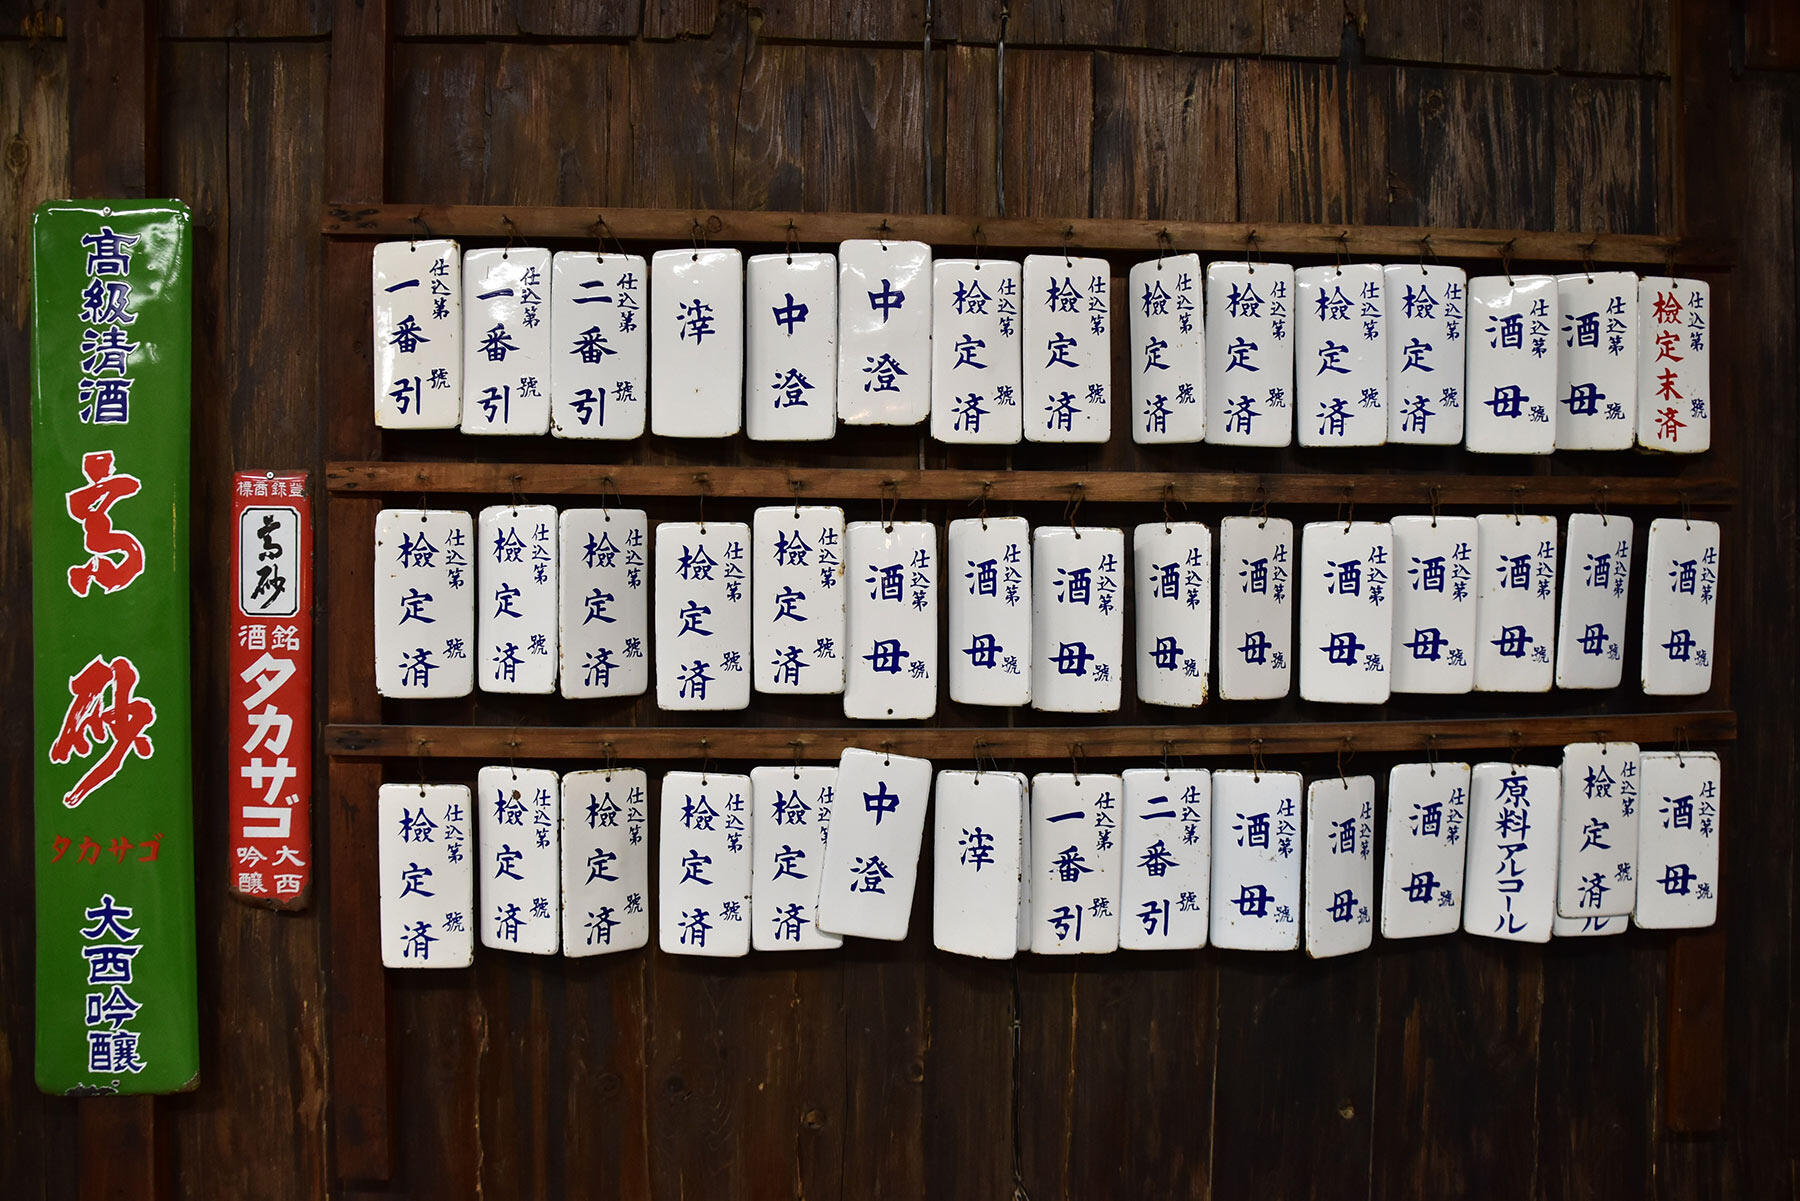 髙級清酒
高砂
タカサゴ
大西吟醸
登録商標
高砂
銘酒
タカサゴ
大西
吟醸
仕込第 號
一番引
仕込第 號
一番引
仕込第 號
二番引
滓
中澄
中澄
仕込第 號
檢定済
仕込第 號
檢定済
仕込第 號
檢定済
仕込第 號
檢定済
仕込第 號
檢定済
仕込第 號
檢定済
仕込第 號
酒母
仕込第 號
酒母
仕込第 號
檢定末済
仕込第 號
檢定済
仕込第 號
檢定済
仕込第 號
檢定済
仕込第 號
檢定済
仕込第 號
檢定済
仕込第 號
酒母
仕込第 號
酒母
仕込第 號
酒母
仕込第 號
酒母
仕込第 號
酒母
仕込第 號
酒母
仕込第 號
酒母
仕込第 號
酒母
仕込第 號
酒母
仕込第 號
酒母
仕込第 號
檢定済
仕込第 號
檢定済
仕込第 號
檢定済
仕込第 號
檢定済
仕込第
檢定済
中澄
滓
仕込第 號
一番引
仕込第 號
二番引
仕込第 號
酒母
仕込第 號
酒母
仕込第 號
酒母
原料アルコール
仕込第 號
檢定済
ル
仕込第 號
酒母